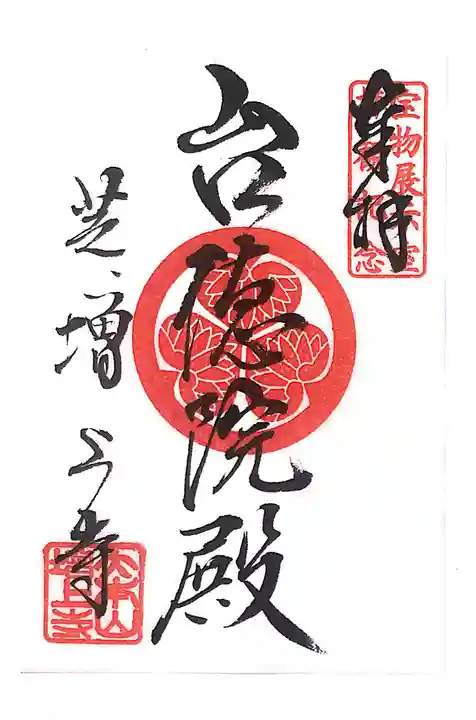 奉拝
宝物展示室
台徳院殿
芝増上寺